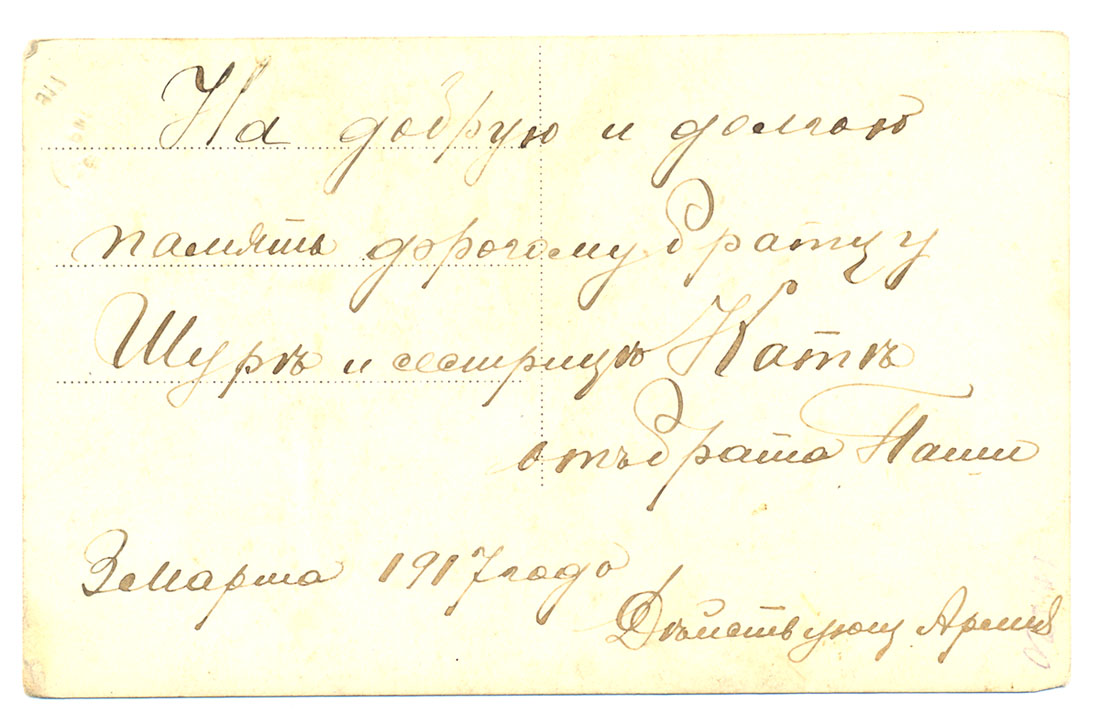 На добрую и долгою
память дорогому братцу
Шурѣ и сестрицѣ Катѣ
отъ брата Паши
3 Марта 1917 годо
Дѣйствующ Армия